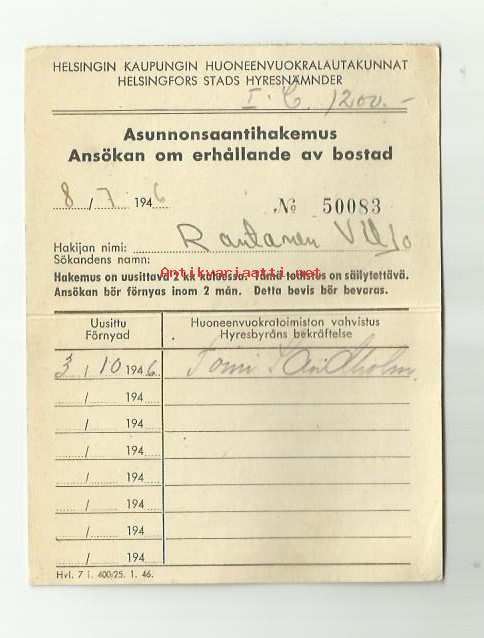 HELSINGIN KAUPUNGIN HUONEENVUOKRALAUTAKUNNAT
HELSINGFORS STADS HYRESNÄMNDER
I. C. 1200.-
Asunnonsaantihakemus
Ansökan om erhållande av bostad
8 / 7 1946
№ 50083
Hakijan nimi: Rantanen Viljo
Sökandens namn:
Hakemus on uusittava 2 kk kuluessa. Tämä todistus on säilytettävä.
Antikvariaatti.net
Ansökan bör förnyas inom 2 mån. Detta bevis bör bevaras.
Uusittu Huoneenvuokratoimiston vahvistus
Förnyad Hyresbyråns bekräftelse
3 / 10 1946 Toini
/ 194
/ 194
/ 194
/ 194
/ 194
/ 194
/ 194
Hvl. 7 i. 400/25. 1. 46.